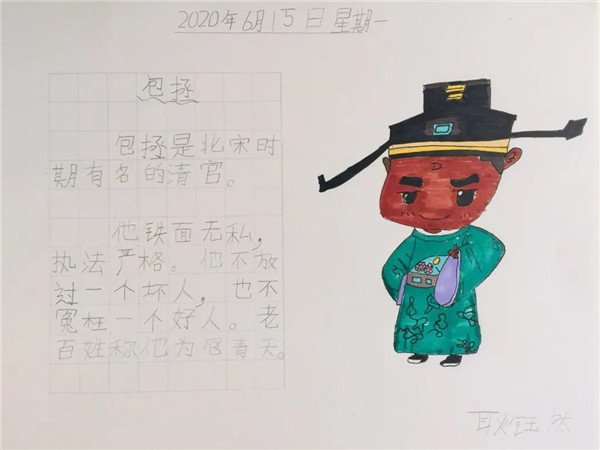 2020年6月15日星期一
包拯
包拯是北宋时
期有名的清官。
他铁面无私，
执法严格。他不放
过一个坏人，也不
冤枉一个好人。老
百姓称他为包青天。